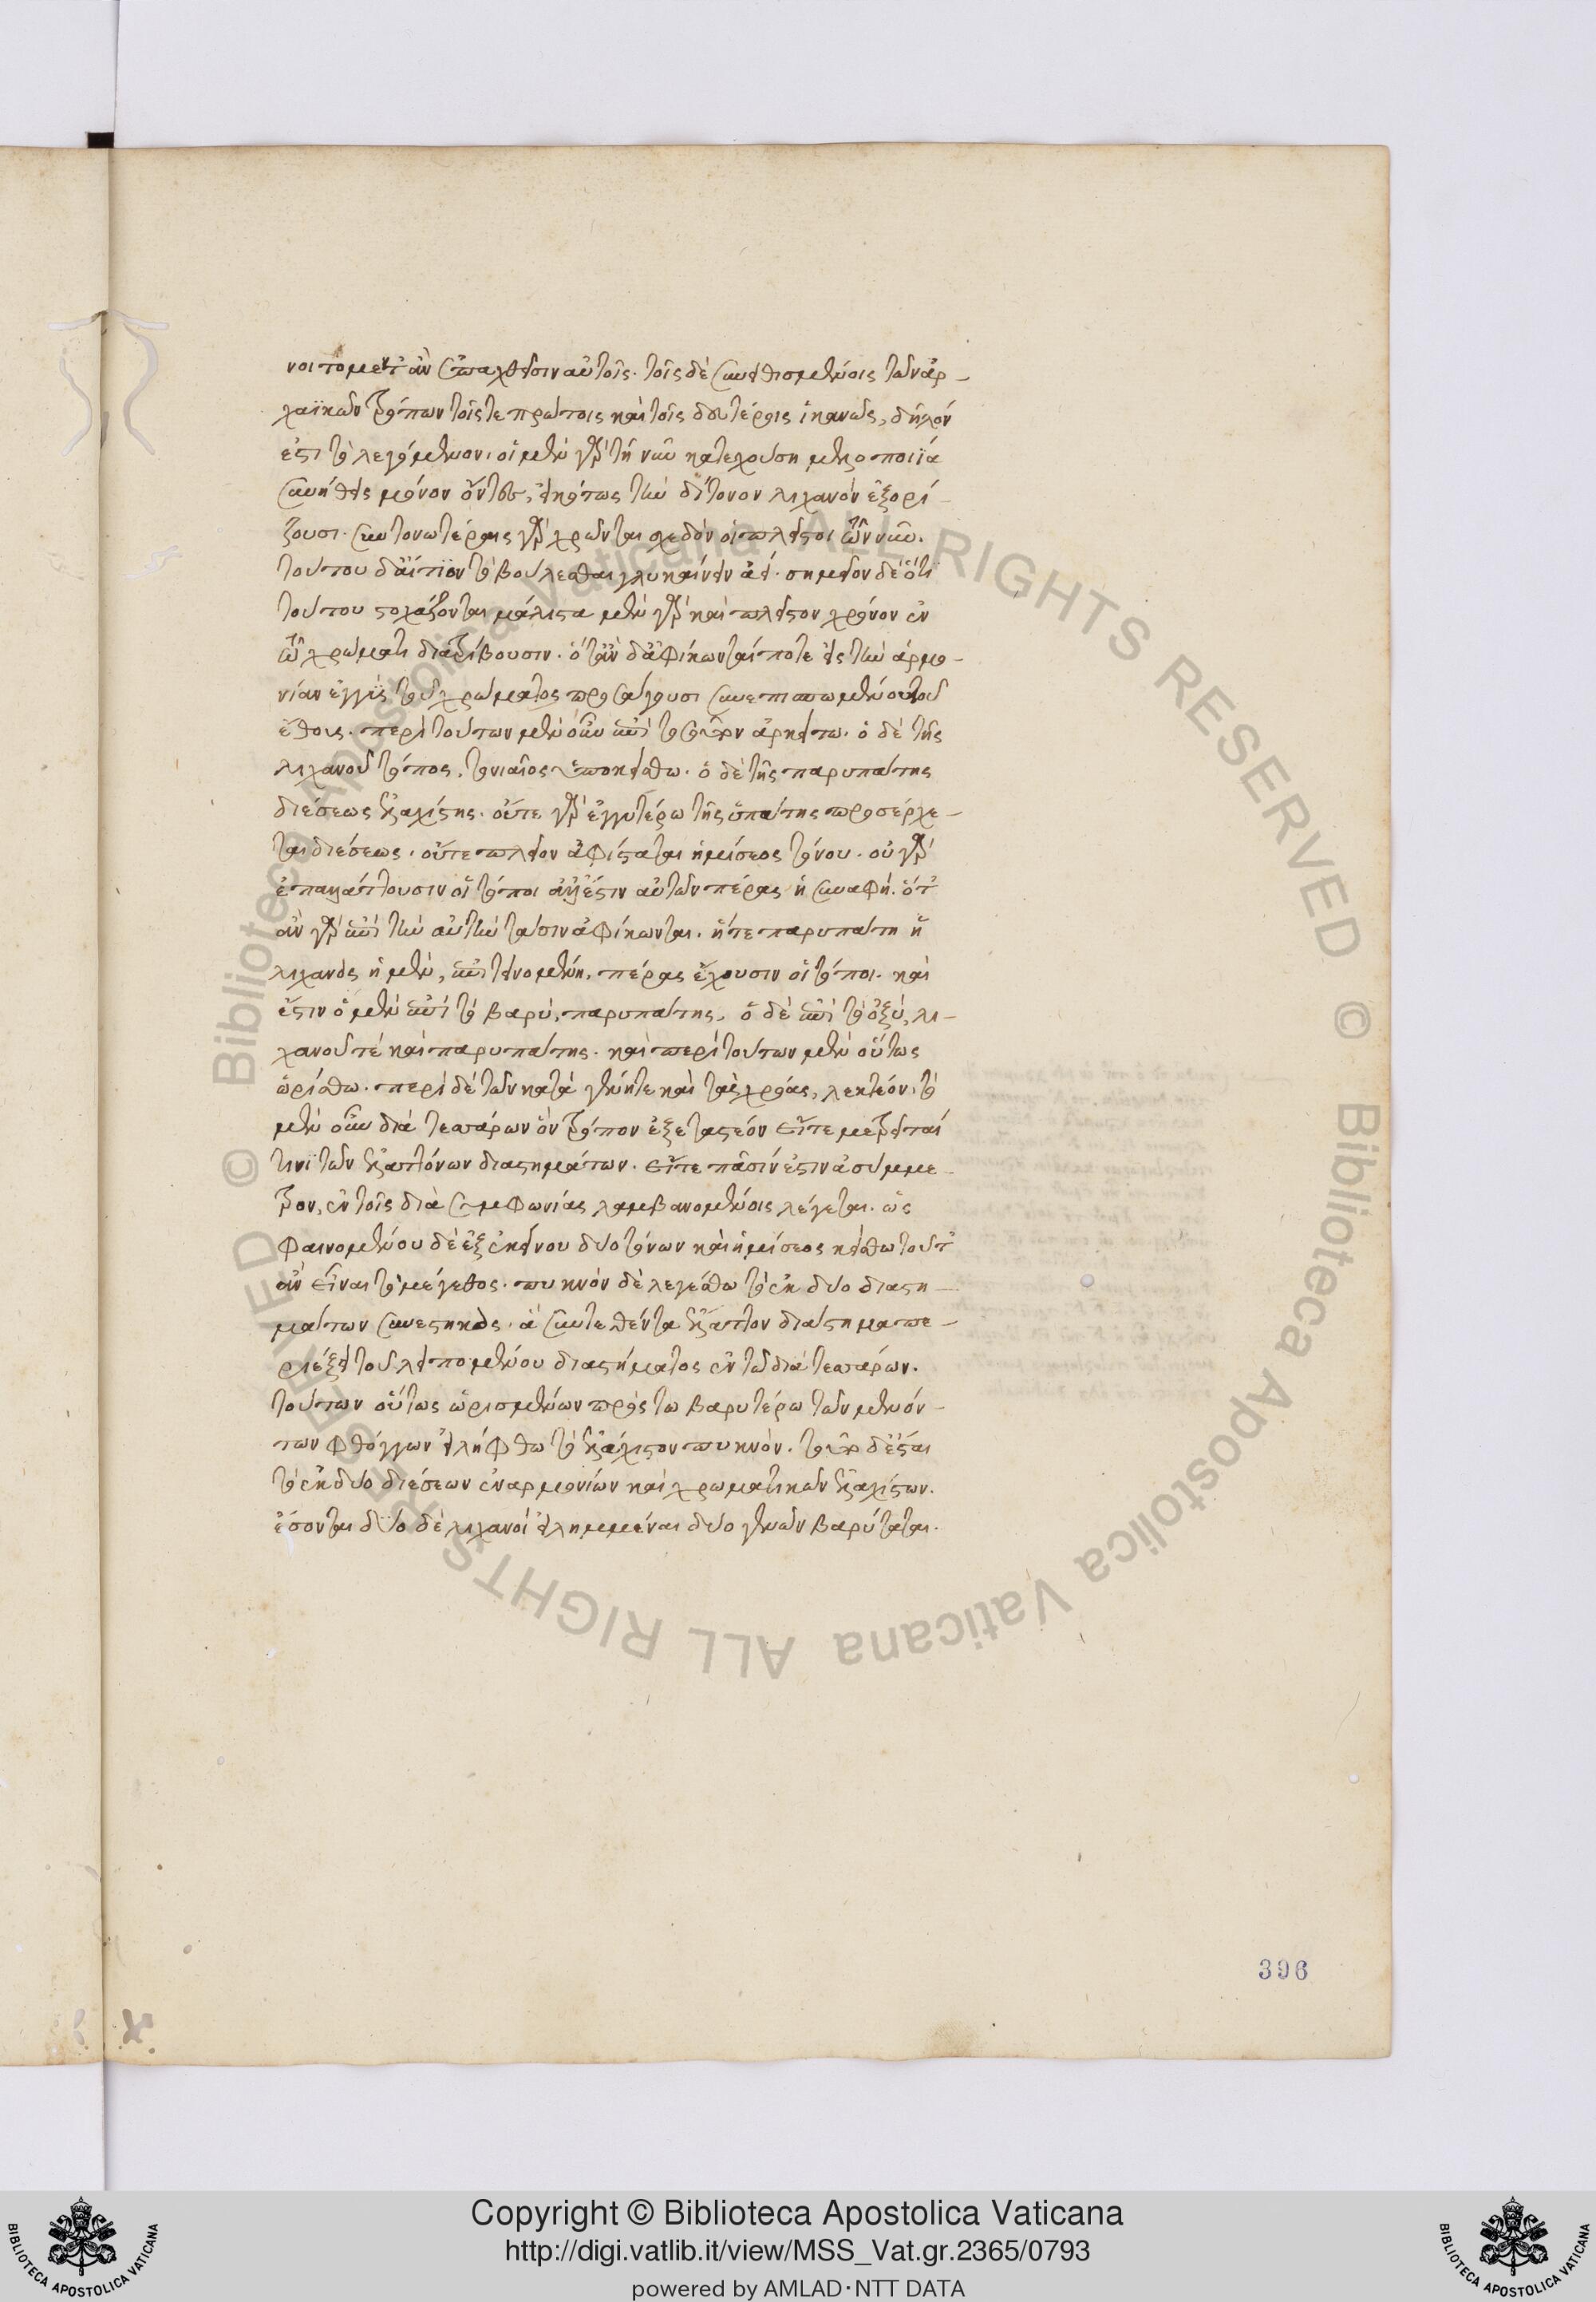 νοιτο μέντ' ἂν ἐπαχθεῖσιν αὐτοῖς. τοῖς δὲ συνεθισμένοις τῶν ἀρ-
χαϊκῶν τρόπων τοῖς τε πρώτοις καὶ τοῖς δευτέροις ἱκανῶς, δῆλόν
ἐστι τὸ λεγόμενον. οἱ μὲν γὰρ τῇ νῦν κατεχούσῃ μελοποιΐᾳ
συνήθεις μόνον ὄντες, εἰκότως τὴν δίτονον λιχανὸν ἐξορί-
ζουσι. συντονωτέραις γὰρ χρῶνται σχεδὸν οἱ πλεῖστοι τῶν νῦν.
τούτου δ' αἴτιον τὸ βούλεσθαι γλυκαίνειν ἀεί. σημεῖον δὲ ὅτι
τούτου στοχάζονται μάλιστα μὲν γὰρ καὶ πλεῖστον χρόνον ἐν
τῷ χρώματι διατρίβουσιν. ὅταν δ' ἀφίκωνταί ποτε εἰς τὴν ἁρμο-
νίαν ἐγγὺς τοῦ χρώματος προσάγουσι συνεπισπωμένου τοῦ
ἔθους. περὶ τούτων μὲν οὖν ἐπὶ τοσοῦτον ἀρκείτω. ὁ δὲ τῆς
λιχανοῦ τόπος, τονιαῖος ὑποκείσθω. ὁ δὲ τῆς παρυπάτης
διέσεως ἐλαχίστης. οὔτε γὰρ ἐγγυτέρω τῆς ὑπάτης προσέρχε-
ται διέσεως. οὔτε πλεῖον ἀφίσταται ἡμίσεος τόνου. οὐ γὰρ
ἐπαλλάττουσιν οἱ τόποι ἀλλ' ἔστιν αὐτῶν πέρας ἡ συναφή. ὅτ'
ἂν γὰρ ἐπὶ τὴν αὐτὴν τάσιν ἀφίκωνται. ἥ τε παρυπάτη ἡ
λιχανὸς ἡ μὲν, ἐπιτεινομένη, πέρας ἔχουσιν οἱ τόποι. καὶ
ἔστιν ὁ μὲν ἐπὶ τὸ βαρύ, παρυπάτης, ὁ δὲ ἐπὶ τὸ ὀξύ, λι-
χανοῦ τέ καὶ παρυπάτης. καὶ περὶ τούτων μὲν οὕτως
ὡρίσθω. περὶ δὲ τῶν κατὰ γένη τε καὶ τὰς χρόας, λεκτέον. τὸ
μὲν οὖν διὰ τεσσάρων ὃν τρόπον ἐξεταστέον εἴτε μετρεῖταί
τινι τῶν ἐλαττόνων διαστημάτων. εἴτε πᾶσίν ἐστιν ἀσύμμε-
τρον, ἐν τοῖς διὰ συμφωνίας λαμβανομένοις λέγεται. ὡς
φαινομένου δὲ ἐξ ἐκείνου δύο τόνων καὶ ἡμίσεος κείσθω τοῦτ'
ἂν εἶναι τὸ μέγεθος. πυκνὸν δὲ λεγέσθω τὸ ἐκ δύο διαστη-
μάτων συνεστηκὸς. ἃ συντεθέντα ἔλαττον διάστημα πε-
ριέξει τοῦ λειπομένου διαστήματος ἐν τῷ διὰ τεσσάρων.
τούτων οὕτως ὡρισμένων πρὸς τῷ βαρυτέρῳ τῶν μενόν-
των φθόγγων εἰλήφθω τὸ ἐλάχιστον πυκνόν. τοῦτο δ' ἔσται
τὸ ἐκ δύο διέσεων ἐναρμονίων καὶ χρωματικῶν ἐλαχίστων.
ἔσονται δύο δὲ λιχανοὶ εἰλημμέναι δύο γενῶν βαρύταται.
396
Copyright © Biblioteca Apostolica Vaticana
http://digi.vatlib.it/view/MSS_Vat.gr.2365/0793
powered by AMLAD·NTT DATA